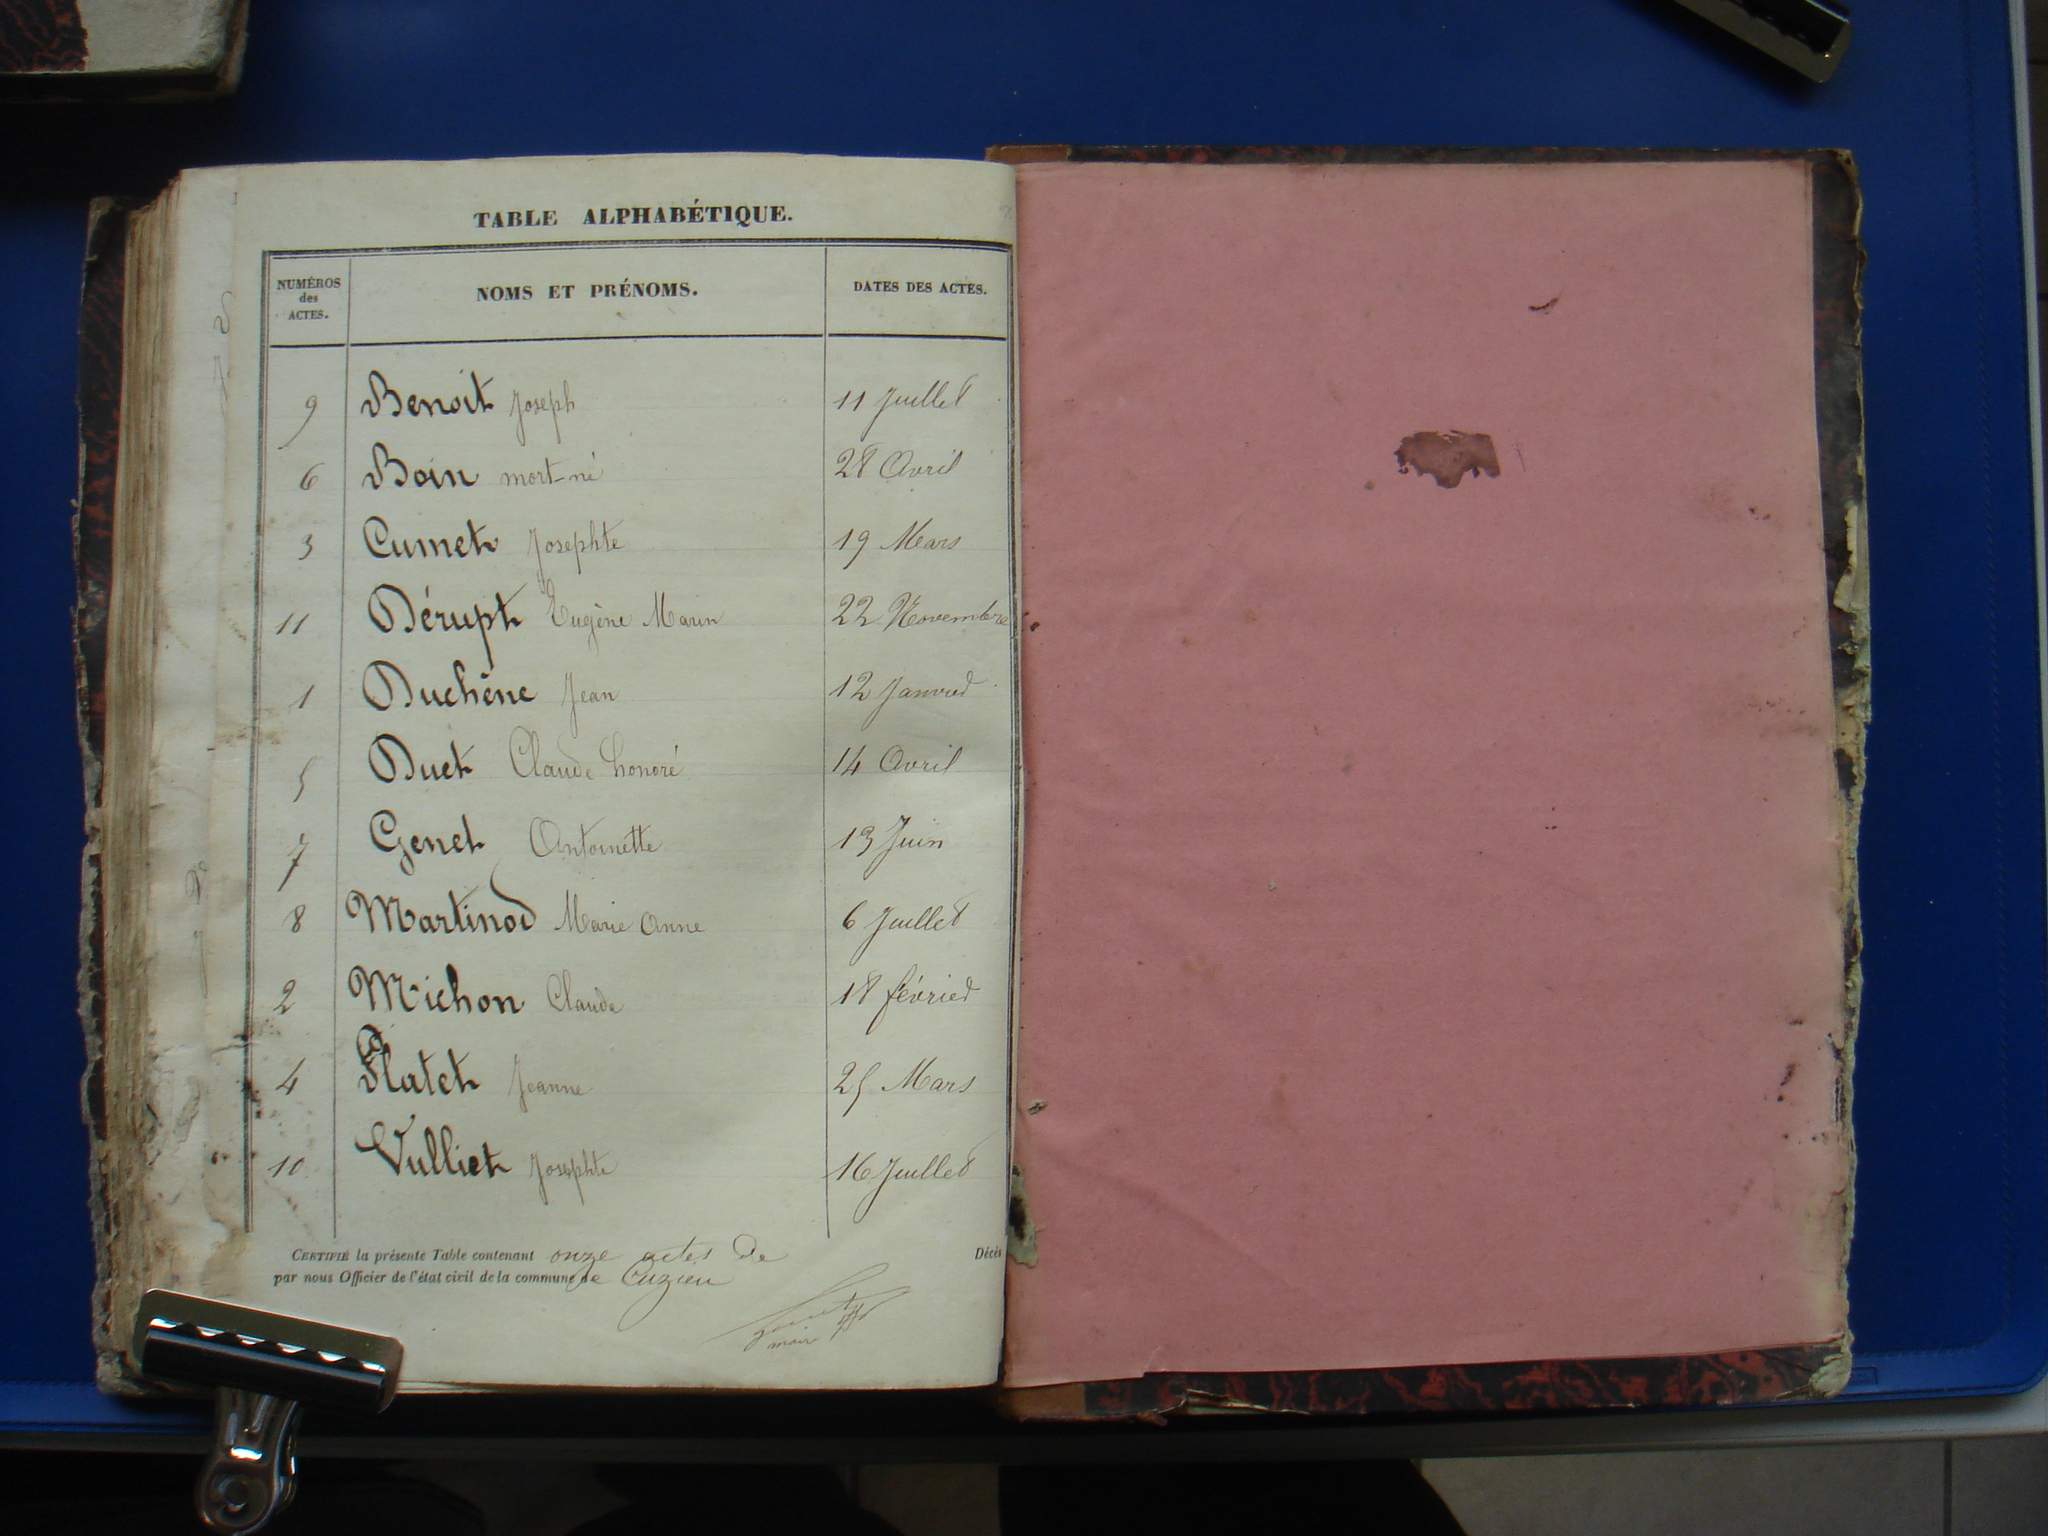 TABLE ALPHABÉTIQUE.
NUMÉROS des ACTES. NOMS ET PRÉNOMS. DATES DES ACTES.
9 Benoit Joseph 11 Juillet
6 Boin mort-né 28 Avril
3 Cumet Josephte 19 Mars
11 Dérupt Eugène Marin 22 Novembre
1 Duchêne Jean 12 Janvier
5 Duet Claude honoré 14 Avril
7 Genet Antoinette 13 Juin
8 Martinod Marie Anne 6 Juillet
2 Michon Claude 18 février
4 Platet Jeanne 25 Mars
10 Vulliet Josephte 16 Juillet
CERTIFIÉ la présente Table contenant onze actes de Décès
par nous Officier de l'état civil de la commune de Cuzieu
maire